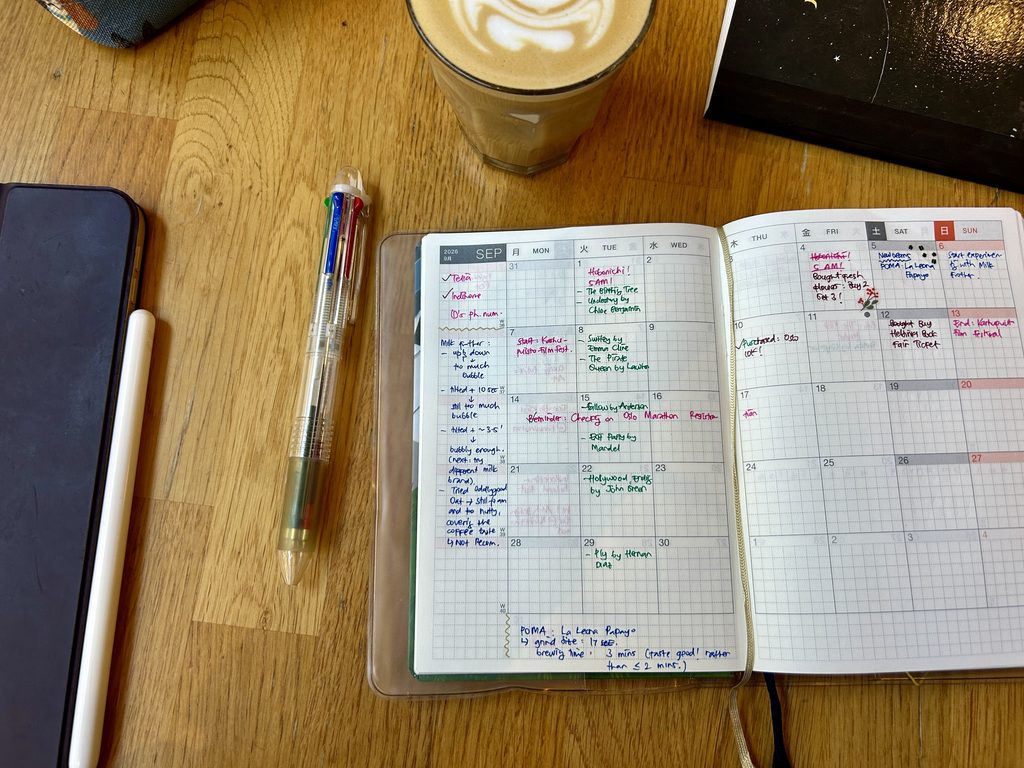 2026
9月
SEP
月 MON
火 TUE
水 WED
木 THU
金 FRI
土 SAT
日 SUN
✓ Telia
✓
ph. num.
31
1
Hobonichi!
5 AM!
- The Birthing Tree
- Undertony by
Chloe Benjamin
2
3
4
Hobonichi!
5 AM!
Bought fresh
flowers: Buy 2
Get 3!
5
New beans
POMA La Leona
Papayo
6
Start experimen
with Milk
Frother
Milk frother:
- up & down
↓
too much
bubble
- tilted + 10 sec
↓
still too much
bubble
- tilted + ~3-5'
↓
bubbly enough.
(next: try
different milk
brand)
- Tried
Oat → still foam
and too nutty,
covering the
coffee taste
↳ Not Recom.
7
Start:
Film Fest.
8
- Switch by
Emma Cline
- The Pirate
Queen by
9
10
✓ Purchased:
10K!
11
12
Bought Buy
Helsinki Book
Fair Ticket
13
End:
Film Festival
14
15
- Fallow by Anderson
Reminder: Checky on Oslo Marathon Registra-
tion
- Exit Party by
Mandel
16
17
18
19
20
21
22
- Hollywood, Ending
by John Green
23
24
25
26
27
28
29
- Ply by Hernan
Diaz
30
1
2
3
4
W
40
POMA: La Leona Papayo
↳ grind size: 17 sec.
brewing time: 3 mins (taste good! rather
than ≤ 2 mins.)